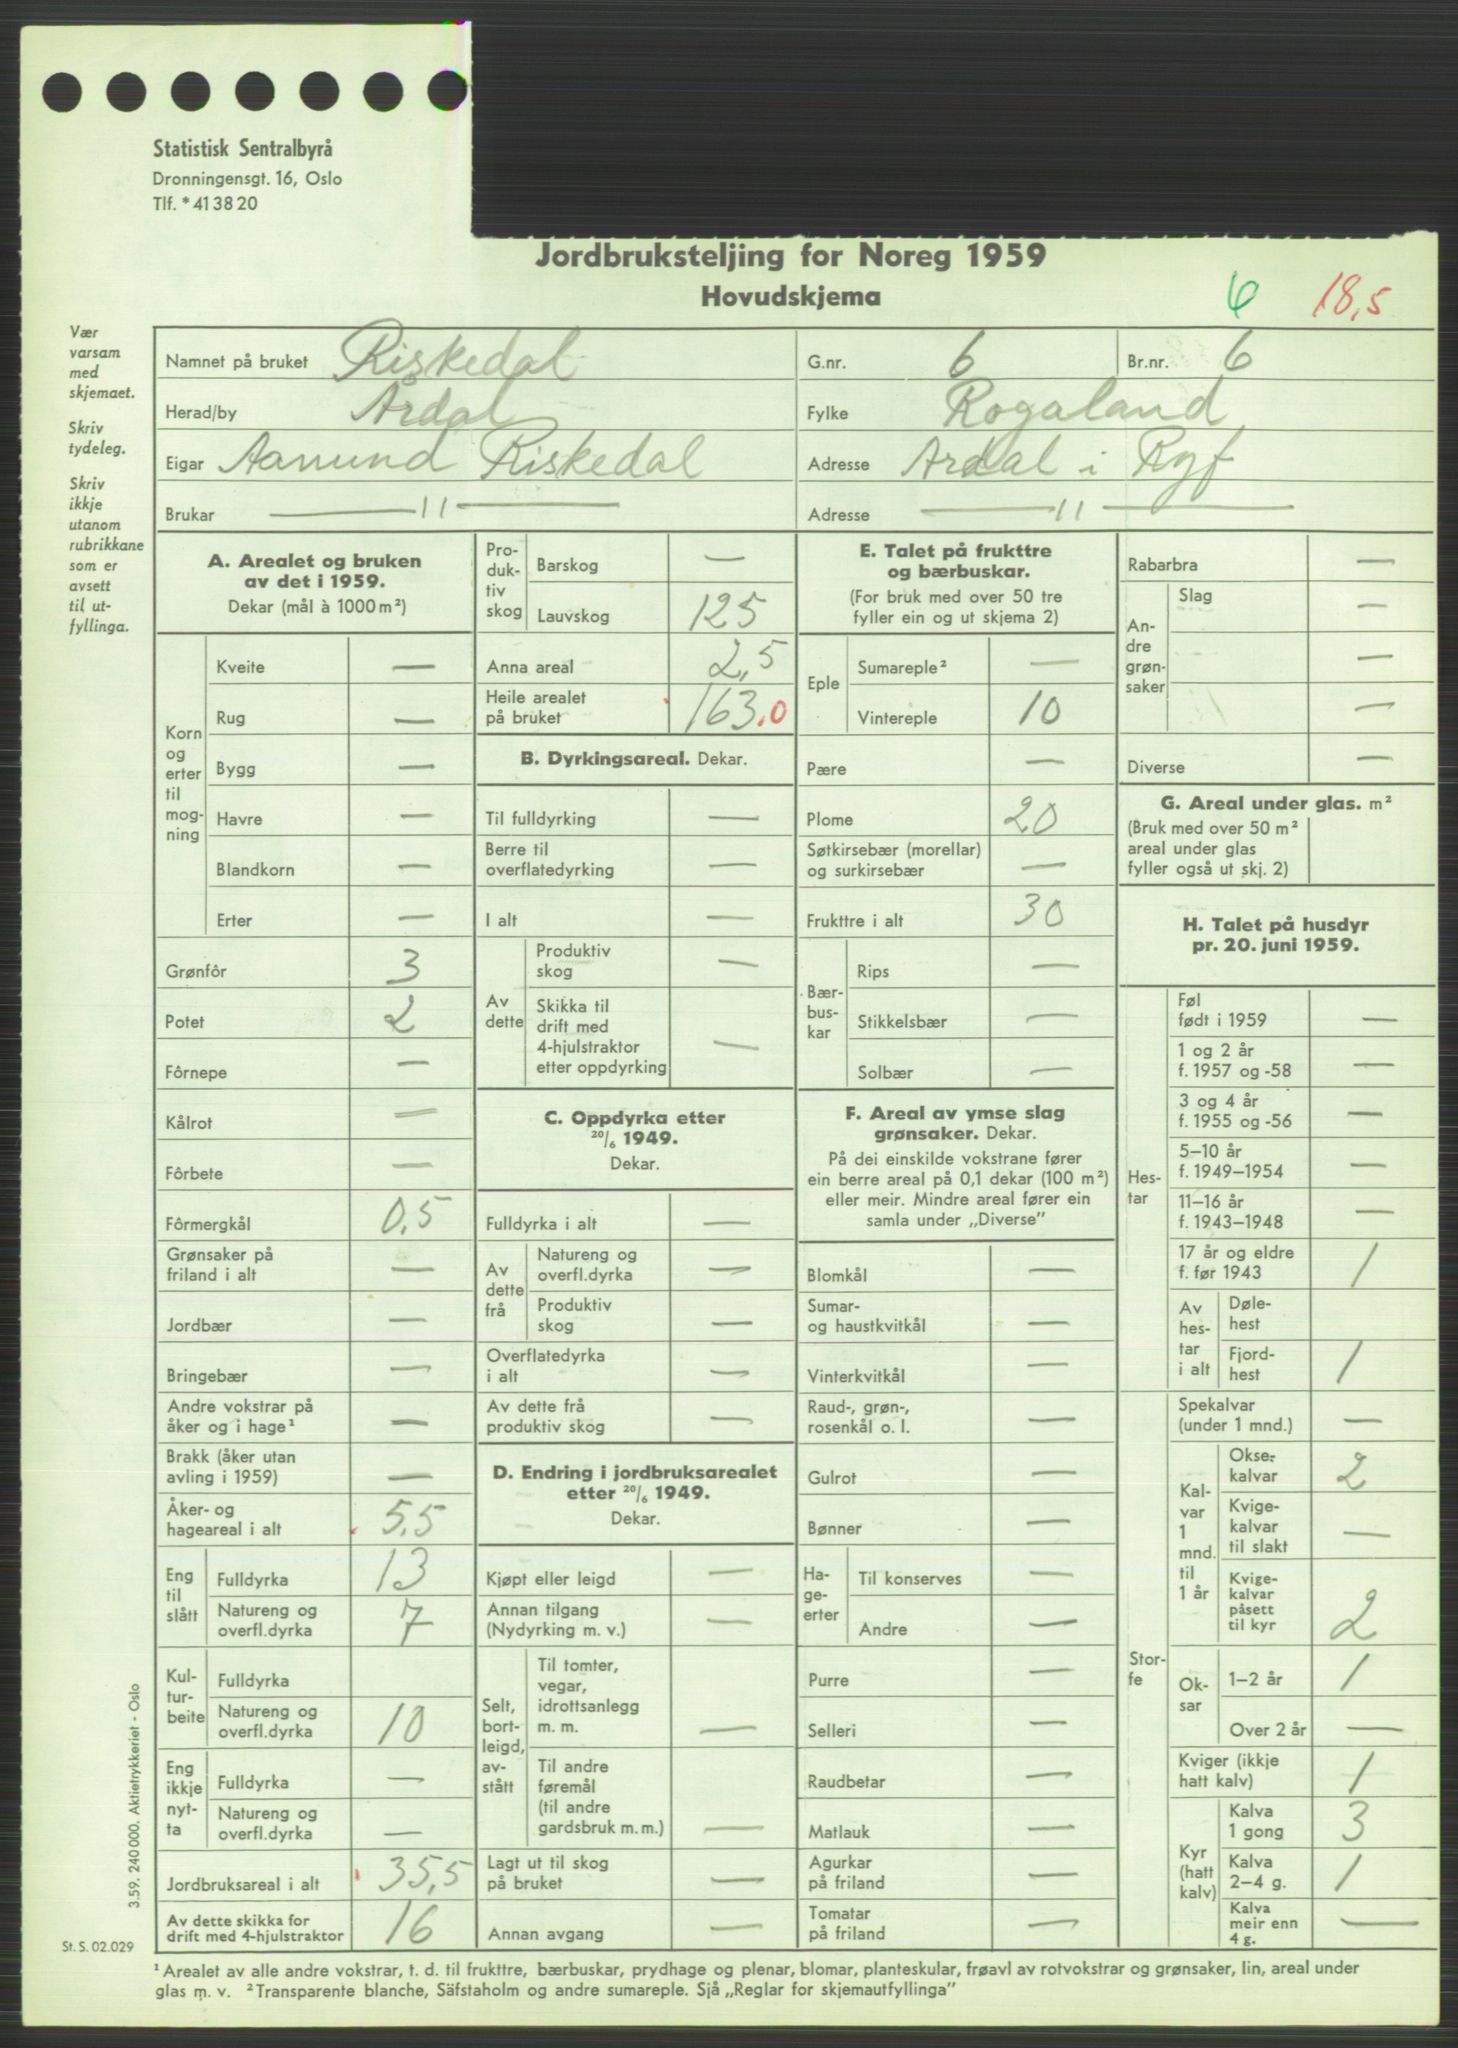 Statistisk Sentralbyrå
Dronningensgt. 16, Oslo
Tlf. * 41 38 20
Jordbruksteljing for Noreg 1959
Hovudskjema
6 18,5
Vær
varsam
med
skjemaet.
Skriv
tydeleg.
Skriv
ikkje
utanom
rubrikkane
som er
avsett
til ut-
fyllinga.
Namnet på bruket Riskedal G.nr. 6 Br.nr. 6
Herad/by Årdal Fylke Rogaland
Eigar Aamund Riskedal Adresse Årdal i Ryf
Brukar — 11 — Adresse — 11 —
A. Arealet og bruken
av det i 1959.
Dekar (mål à 1000 m²)
Korn
og
erter
til
mog-
ning
Kveite —
Rug —
Bygg —
Havre —
Blandkorn —
Erter —
Grønfôr 3
Potet 2
Fôrnepe —
Kålrot —
Fôrbete —
Fôrmergkål 0,5
Grønsaker på
friland i alt —
Jordbær —
Bringebær —
Andre vokstrar på
åker og i hage¹ —
Brakk (åker utan
avling i 1959) —
Åker- og
hageareal i alt 5,5
Eng
til
slått
Fulldyrka 13
Natureng og
overfl.dyrka 7
Kul-
tur-
beite
Fulldyrka
Natureng og
overfl.dyrka 10
Eng
ikkje
nyt-
ta
Fulldyrka —
Natureng og
overfl.dyrka —
Jordbruksareal i alt 35,5
Av dette skikka for
drift med 4-hjulstraktor 16
Pro-
duk-
tiv
skog
Barskog —
Lauvskog 125
Anna areal 2,5
Heile arealet
på bruket 163,0
B. Dyrkingsareal. Dekar.
Til fulldyrking —
Berre til
overflatedyrking —
I alt —
Av
dette
Produktiv
skog —
Skikka til
drift med
4-hjulstraktor
etter oppdyrking —
C. Oppdyrka etter
20/6 1949.
Dekar.
Fulldyrka i alt —
Av
dette
frå
Natureng og
overfl.dyrka —
Produktiv
skog —
Overflatedyrka
i alt —
Av dette frå
produktiv skog —
D. Endring i jordbruksarealet
etter 20/6 1949.
Dekar.
Kjøpt eller leigd —
Annan tilgang
(Nydyrking m. v.) —
Selt,
bort-
leigd,
av-
stått
Til tomter,
vegar,
idrottsanlegg
m. m. —
Til andre
føremål
(til andre
gardsbruk m. m.) —
Lagt ut til skog
på bruket —
Annan avgang —
E. Talet på frukttre
og bærbuskar.
(For bruk med over 50 tre
fyller ein og ut skjema 2)
Eple
Sumareple² —
Vintereple 10
Pære —
Plome 20
Søtkirsebær (morellar)
og surkirsebær —
Frukttre i alt 30
Bær-
bus-
kar
Rips —
Stikkelsbær —
Solbær —
F. Areal av ymse slag
grønsaker. Dekar.
På dei einskilde vokstrane fører
ein berre areal på 0,1 dekar (100 m²)
eller meir. Mindre areal fører ein
samla under „Diverse”
Blomkål —
Sumar-
og haustkvitkål —
Vinterkvitkål —
Raud-, grøn-,
rosenkål o. l. —
Gulrot —
Bønner —
Ha-
ge-
erter
Til konserves —
Andre —
Purre —
Selleri —
Raudbetar —
Matlauk —
Agurkar
på friland —
Tomatar
på friland —
Rabarbra —
An-
dre
grøn-
saker
Slag —
—
—
Diverse —
G. Areal under glas. m²
(Bruk med over 50 m²
areal under glas
fyller også ut skj. 2)
H. Talet på husdyr
pr. 20. juni 1959.
Hes-
tar
Føl
født i 1959 —
1 og 2 år
f. 1957 og -58 —
3 og 4 år
f. 1955 og -56 —
5–10 år
f. 1949–1954 —
11–16 år
f. 1943–1948 —
17 år og eldre
f. før 1943 1
Av
hes-
tar
i alt
Døle-
hest
Fjord-
hest 1
Stor-
fe
Spekalvar
(under 1 mnd.) —
Kal-
var
1
mnd.
til
1 år
Okse-
kalvar 2
Kvige-
kalvar
til slakt —
Kvige-
kalvar
påsett
til kyr 2
Ok-
sar
1–2 år 1
Over 2 år —
Kviger (ikkje
hatt kalv) 1
Kyr
(hatt
kalv)
Kalva
1 gong 3
Kalva
2–4 g. 1
Kalva
meir enn
4 g. —
3.59. 240 000. Aktietrykkeriet - Oslo
St. S. 02.029
¹ Arealet av alle andre vokstrar, t. d. til frukttre, bærbuskar, prydhage og plenar, blomar, planteskular, frøavl av rotvokstrar og grønsaker, lin, areal under
glas m. v. ² Transparente blanche, Säfstaholm og andre sumareple. Sjå „Reglar for skjemautfyllinga”